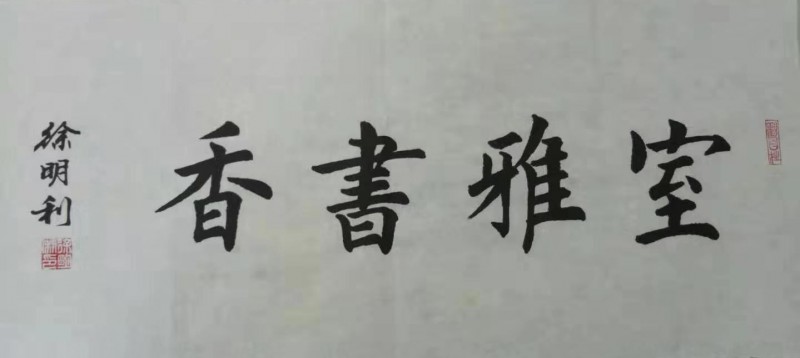 室雅書香
徐明利